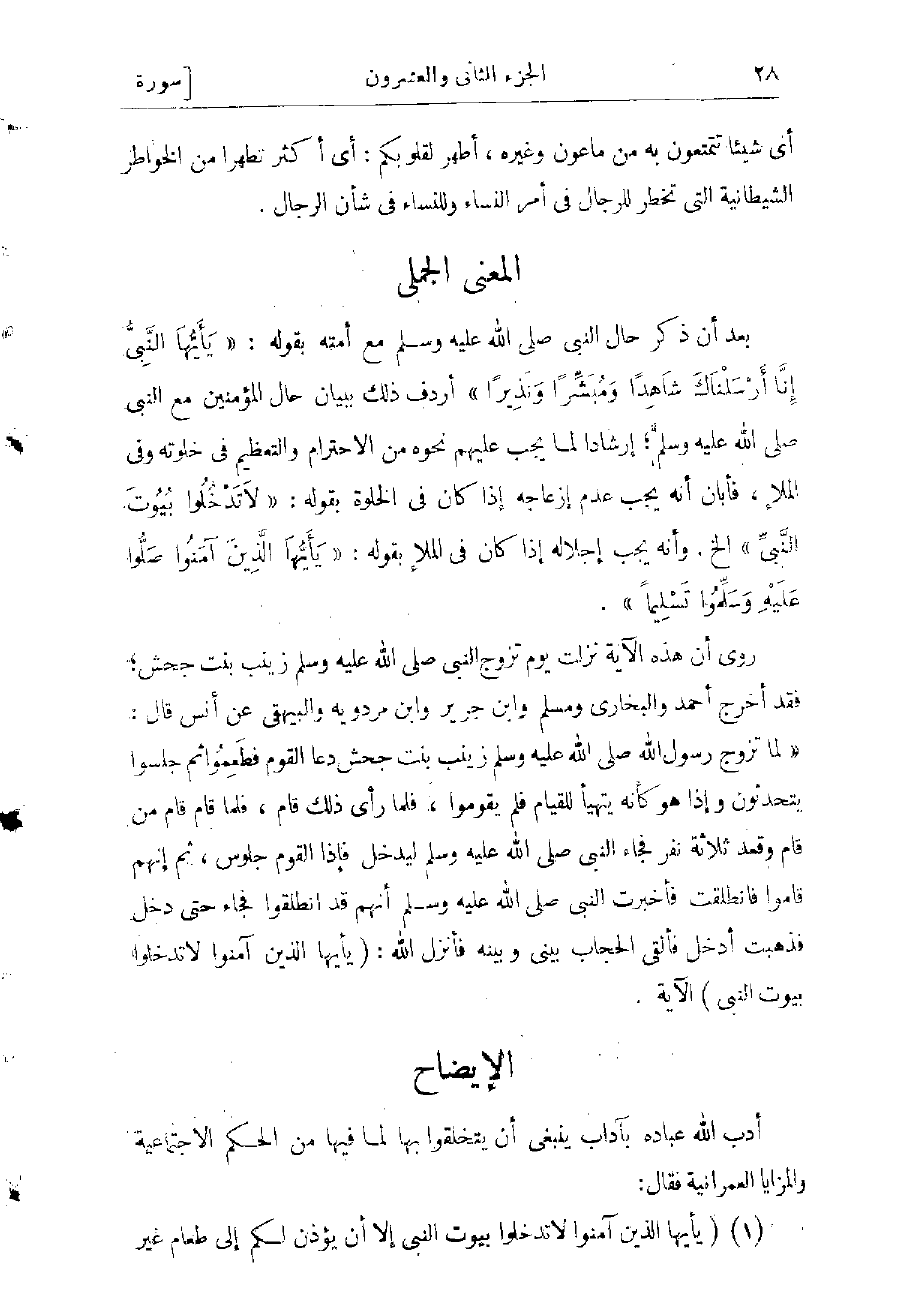 ٢٨ الجزء الثانى والعشرون [سورة
أى شيئا تتمتعون به من ماعون وغيره ، أطهر لقلوبكم : أى أكثر تطهرا من الخواطر
الشيطانية التى تخطر للرجال فى أمر النساء وللنساء فى شأن الرجال .
المعنى الجملى
بعد أن ذكر حال النبى صلى الله عليه وسلم مع أمته بقوله : « يَأَيُّهَا النَّبِىُّ
إِنَّا أَرْسَلْنَاكَ شَاهِدًا وَمُبَشِّرًا وَنَذِيرًا » أردف ذلك ببيان حال المؤمنين مع النبى
صلى الله عليه وسلم ؛ إرشادا لما يجب عليهم نحوه من الاحترام والتعظيم فى خلوته وفى
الملإ ، فأبان أنه يجب عدم إزعاجه إذا كان فى الخلوة بقوله : « لَاتَدْخُلُوا بُيُوتَ
النَّبِىِّ » الخ . وأنه يجب إجلاله إذا كان فى الملإ بقوله : « يَأَيُّهَا الَّذِينَ آمَنُوا صَلُّوا
عَلَيْهِ وَسَلِّمُوا تَسْلِيماً » .
روى أن هذه الآية نزلت يوم تزوج النبى صلى الله عليه وسلم زينب بنت جحش ؛
فقد أخرج أحمد والبخارى ومسلم وابن جرير وابن مردويه والبيهقى عن أنس قال :
« لما تزوج رسول الله صلى الله عليه وسلم زينب بنت جحش دعا القوم فطَعِمُوا ثم جلسوا
يتحدثون وإذا هو كأنه يتهيأ للقيام فلم يقوموا ، فلما رأى ذلك قام ، فلما قام قام من
قام وقعد ثلاثة نفر فجاء النبى صلى الله عليه وسلم ليدخل فإذا القوم جلوس ، ثم إنهم
قاموا فانطلقت فأخبرت النبى صلى الله عليه وسلم أنهم قد انطلقوا فجاء حتى دخل
فذهبت أدخل فألقى الحجاب بينى وبينه فأنزل الله : ( يأيها الذين آمنوا لاتدخلوا
بيوت النبى ) الآية .
الإيضاح
أدب الله عباده بآداب ينبغى أن يتخلقوا بها لما فيها من الحكم الاجتماعية
والمزايا العمرانية فقال :
(١) ( يأيها الذين آمنوا لاتدخلوا بيوت النبى إلا أن يؤذن لكم إلى طعام غير